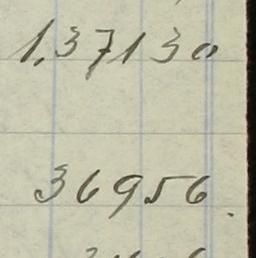 1,37130
36956.